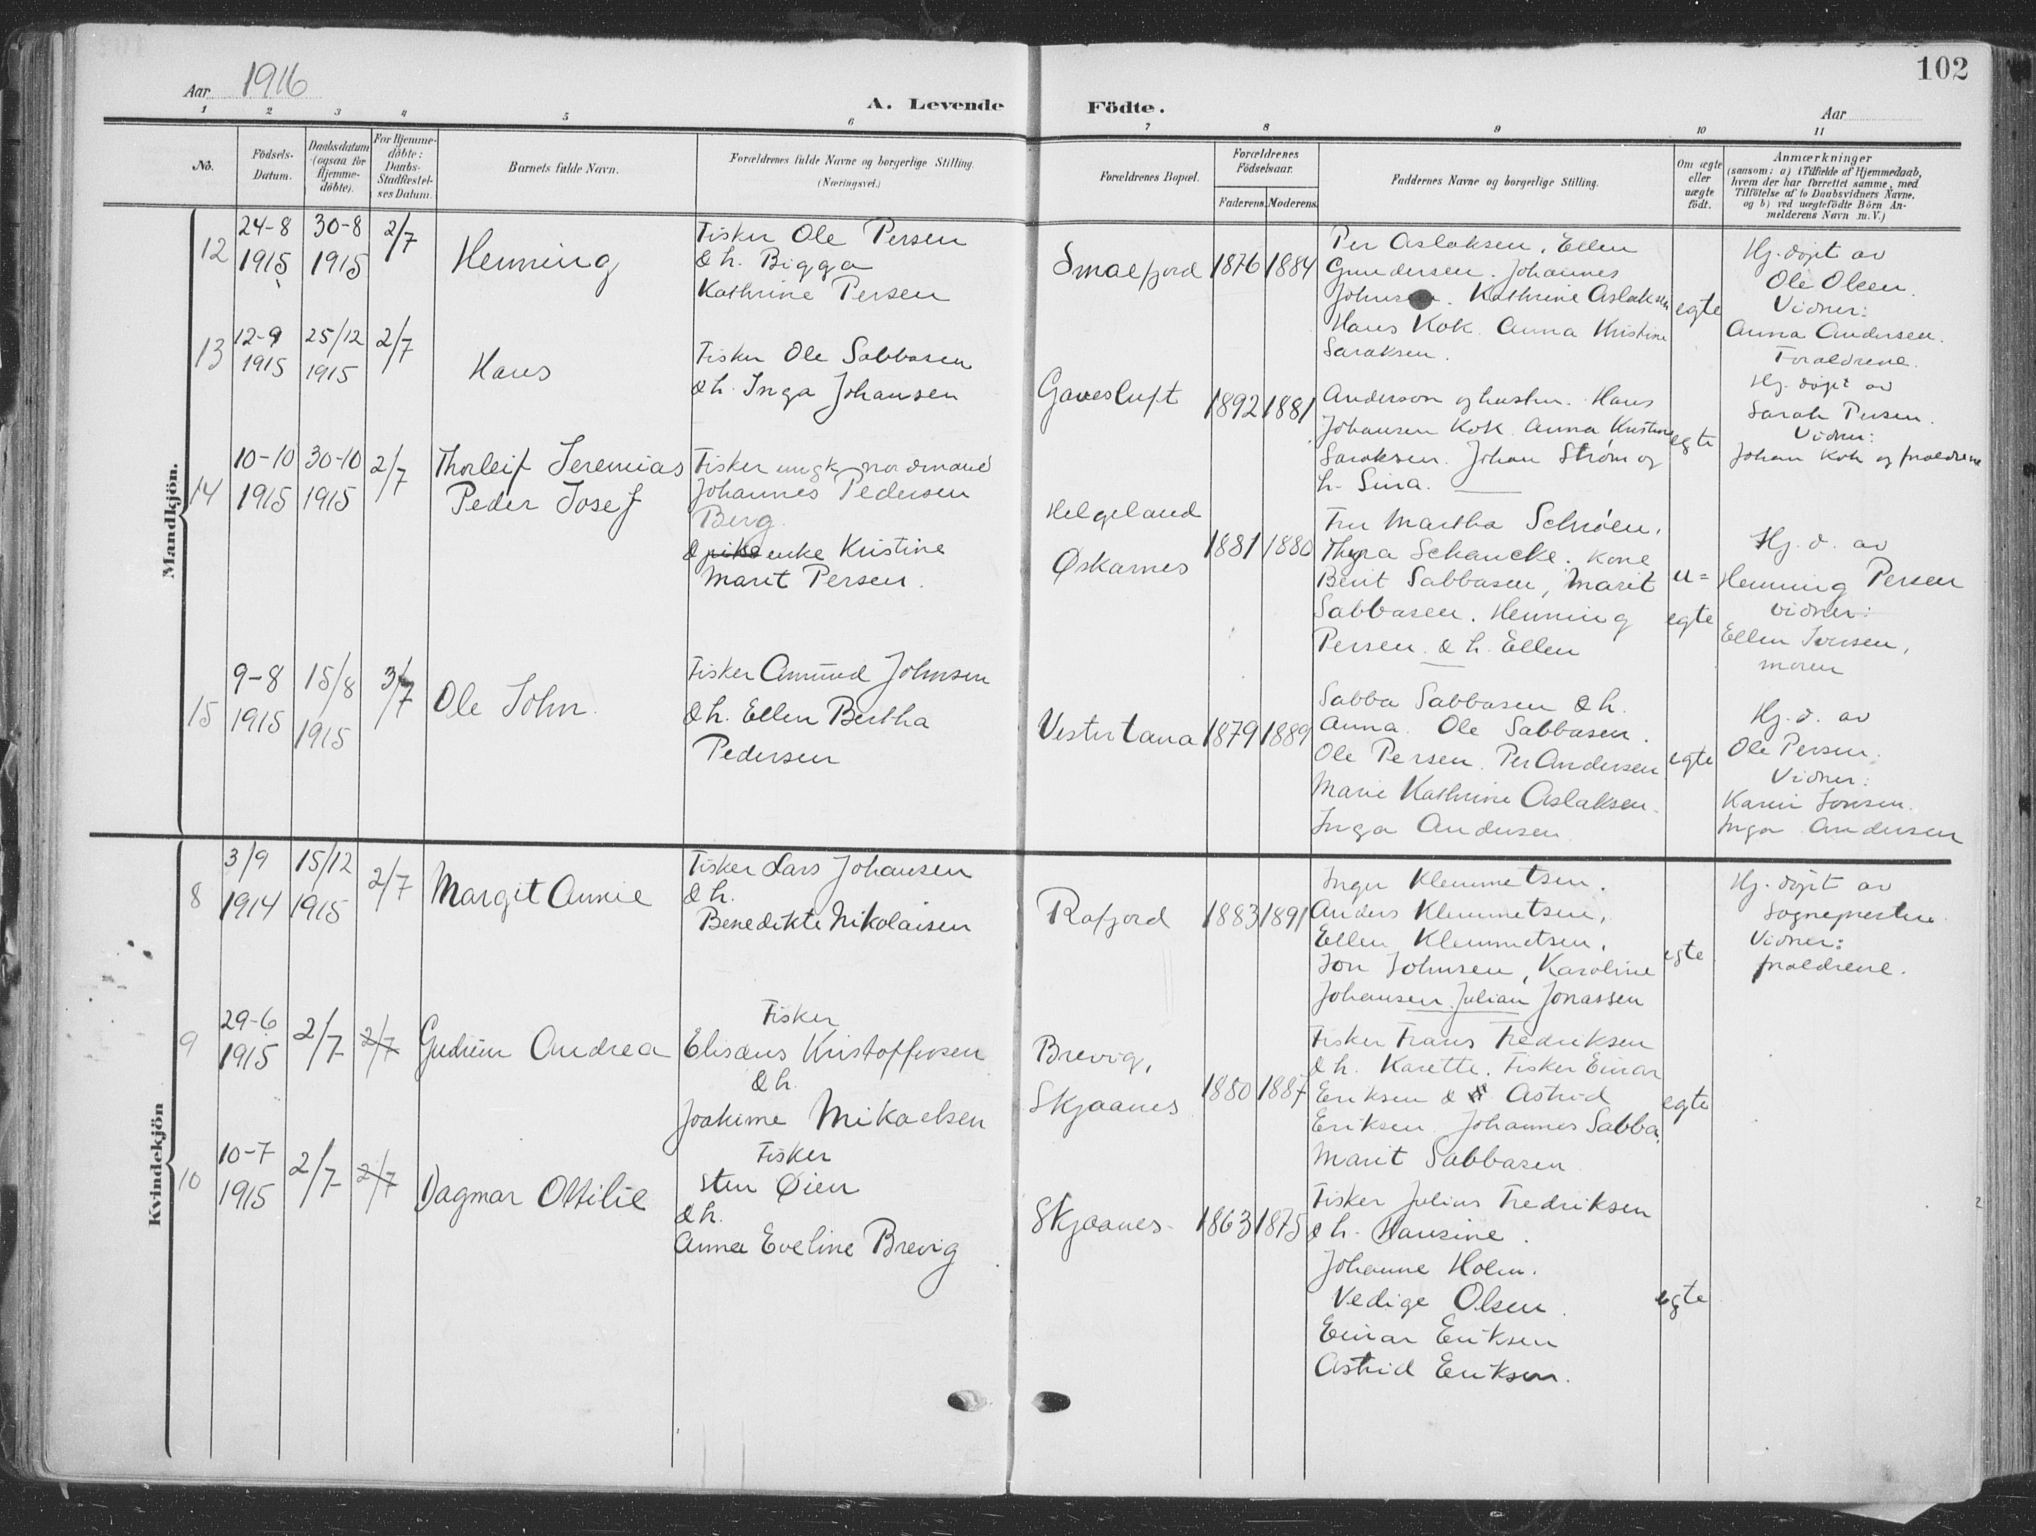 102
Aar 1916
A. Levende Födte.
Aar
1 2 3 4 5 6 7 8 9 10 11
No.
Födsels-Datum.
Daabsdatum (ogsaa for Hjemme-döbte).
For Hjemme-döbte: Daabs-Stadfæstel-ses Datum.
Barnets fulde Navn.
Forældrenes fulde Navne og borgerlige Stilling.
(Næringsvei.)
Forældrenes Bopæl.
Forældrenes Födselsaar.
Faderens. Moderens.
Faddernes Navne og borgerlige Stilling.
Om ægte eller uægte födt.
Anmærkninger
(saasom: a) i Tilfælde af Hjemmedaab,
hvem der har forrettet samme, med
Tilföielse af to Daabsvidners Navne,
og b) ved uægtefödte Börn An-
melderens Navn m. V.)
Mandkjön.
12
24-8
1915
30-8
1915
2/7
Henning
Fisker Ole Persen
& h. Bigga
Kathrine Persen
Smalfjord
1876
1884
Per Aslaksen, Ellen
Gundersen. Johannes
Johnsen. Kathrine Aslaksen
Hans Kok. Anna Kristine
Saraksen.
egte
Hj. døpt av
Ole Olsen.
Vidner:
Anna Andersen.
Foraldrene.
13
12-9
1915
25/12
1915
2/7
Hans
Fisker Ole Sabbasen
& h. Inga Johansen
Gavesluft
1892
1881
Anderson og hustru. Hans
Johansen Kok. Anna Kristine
Saraksen. Johan Strøm og
h. Sina.
egte
Hj. døpt av
Sarah Persen.
Vidner:
Johan Kok og foraldrene
14
10-10
1915
30-10
1915
2/7
Thorleif Jeremias
Peder Josef
Fisker ungk nordmand
Johannes Pedersen
Berg.
& pike enke Kristine
Marit Persen.
Helgeland
Øskarnes
1881
1880
Fru Martha Schrøen,
Thyra Schancke. Kone
Berit Sabbasen, Marit
Sabbasen. Henning
Persen. & h. Ellen
u=
egte
Hj. d. av
Henning Persen
vidner:
Ellen Iversen,
moren
15
9-8
1915
15/8
1915
3/7
Ole John.
Fisker Amund Johnsen
& h. Ellen Bertha
Pedersen
Vestertana
1879
1889
Sabba Sabbasen & h.
Anna. Ole Sabbasen.
Ole Persen. Per Andersen
Marie Kathrine Aslaksen.
Inga Andersen.
egte
Hj. d. av
Ole Persen.
Vidner:
Karen Iversen.
Inga Andersen
Kvindekjön
8
3/9
1914
15/12
1915
2/7
Margit Annie
Fisker Lars Johansen
& h.
Benedikte Nikolaisen
Rafjord
1883
1891
Inger Klemmetsen.
Anders Klemmetsen.
Ellen Klemmetsen.
Jon Johnsen, Karoline
Johansen. Julian Jonassen
egte
Hj. døpt av
Sogneprestene
Vidner:
foraldrene.
9
29-6
1915
2/7
2/7
Gudrun Andrea
Fisker
Elisæus Kristoffersen
& h.
Joakime Mikaelsen
Brevig,
Skjaanes
1880
1887
Fisker Frans Fredriksen
& h. Karette. Fisker Einar
Eriksen & Astrid
Eriksen. Johannes Sabba.
Marit Sabbasen
egte
10
10-7
1915
2/7
2/7
Dagmar Ottilie
Fisker
Sten Øien
& h.
Anna Eveline Brevig
Skjaanes.
1863
1875
Fisker Julius Fredriksen
& h. Hansine.
Johanne Holm.
Vedige Olsen.
Einar Eriksen
Astrid Eriksen.
egte